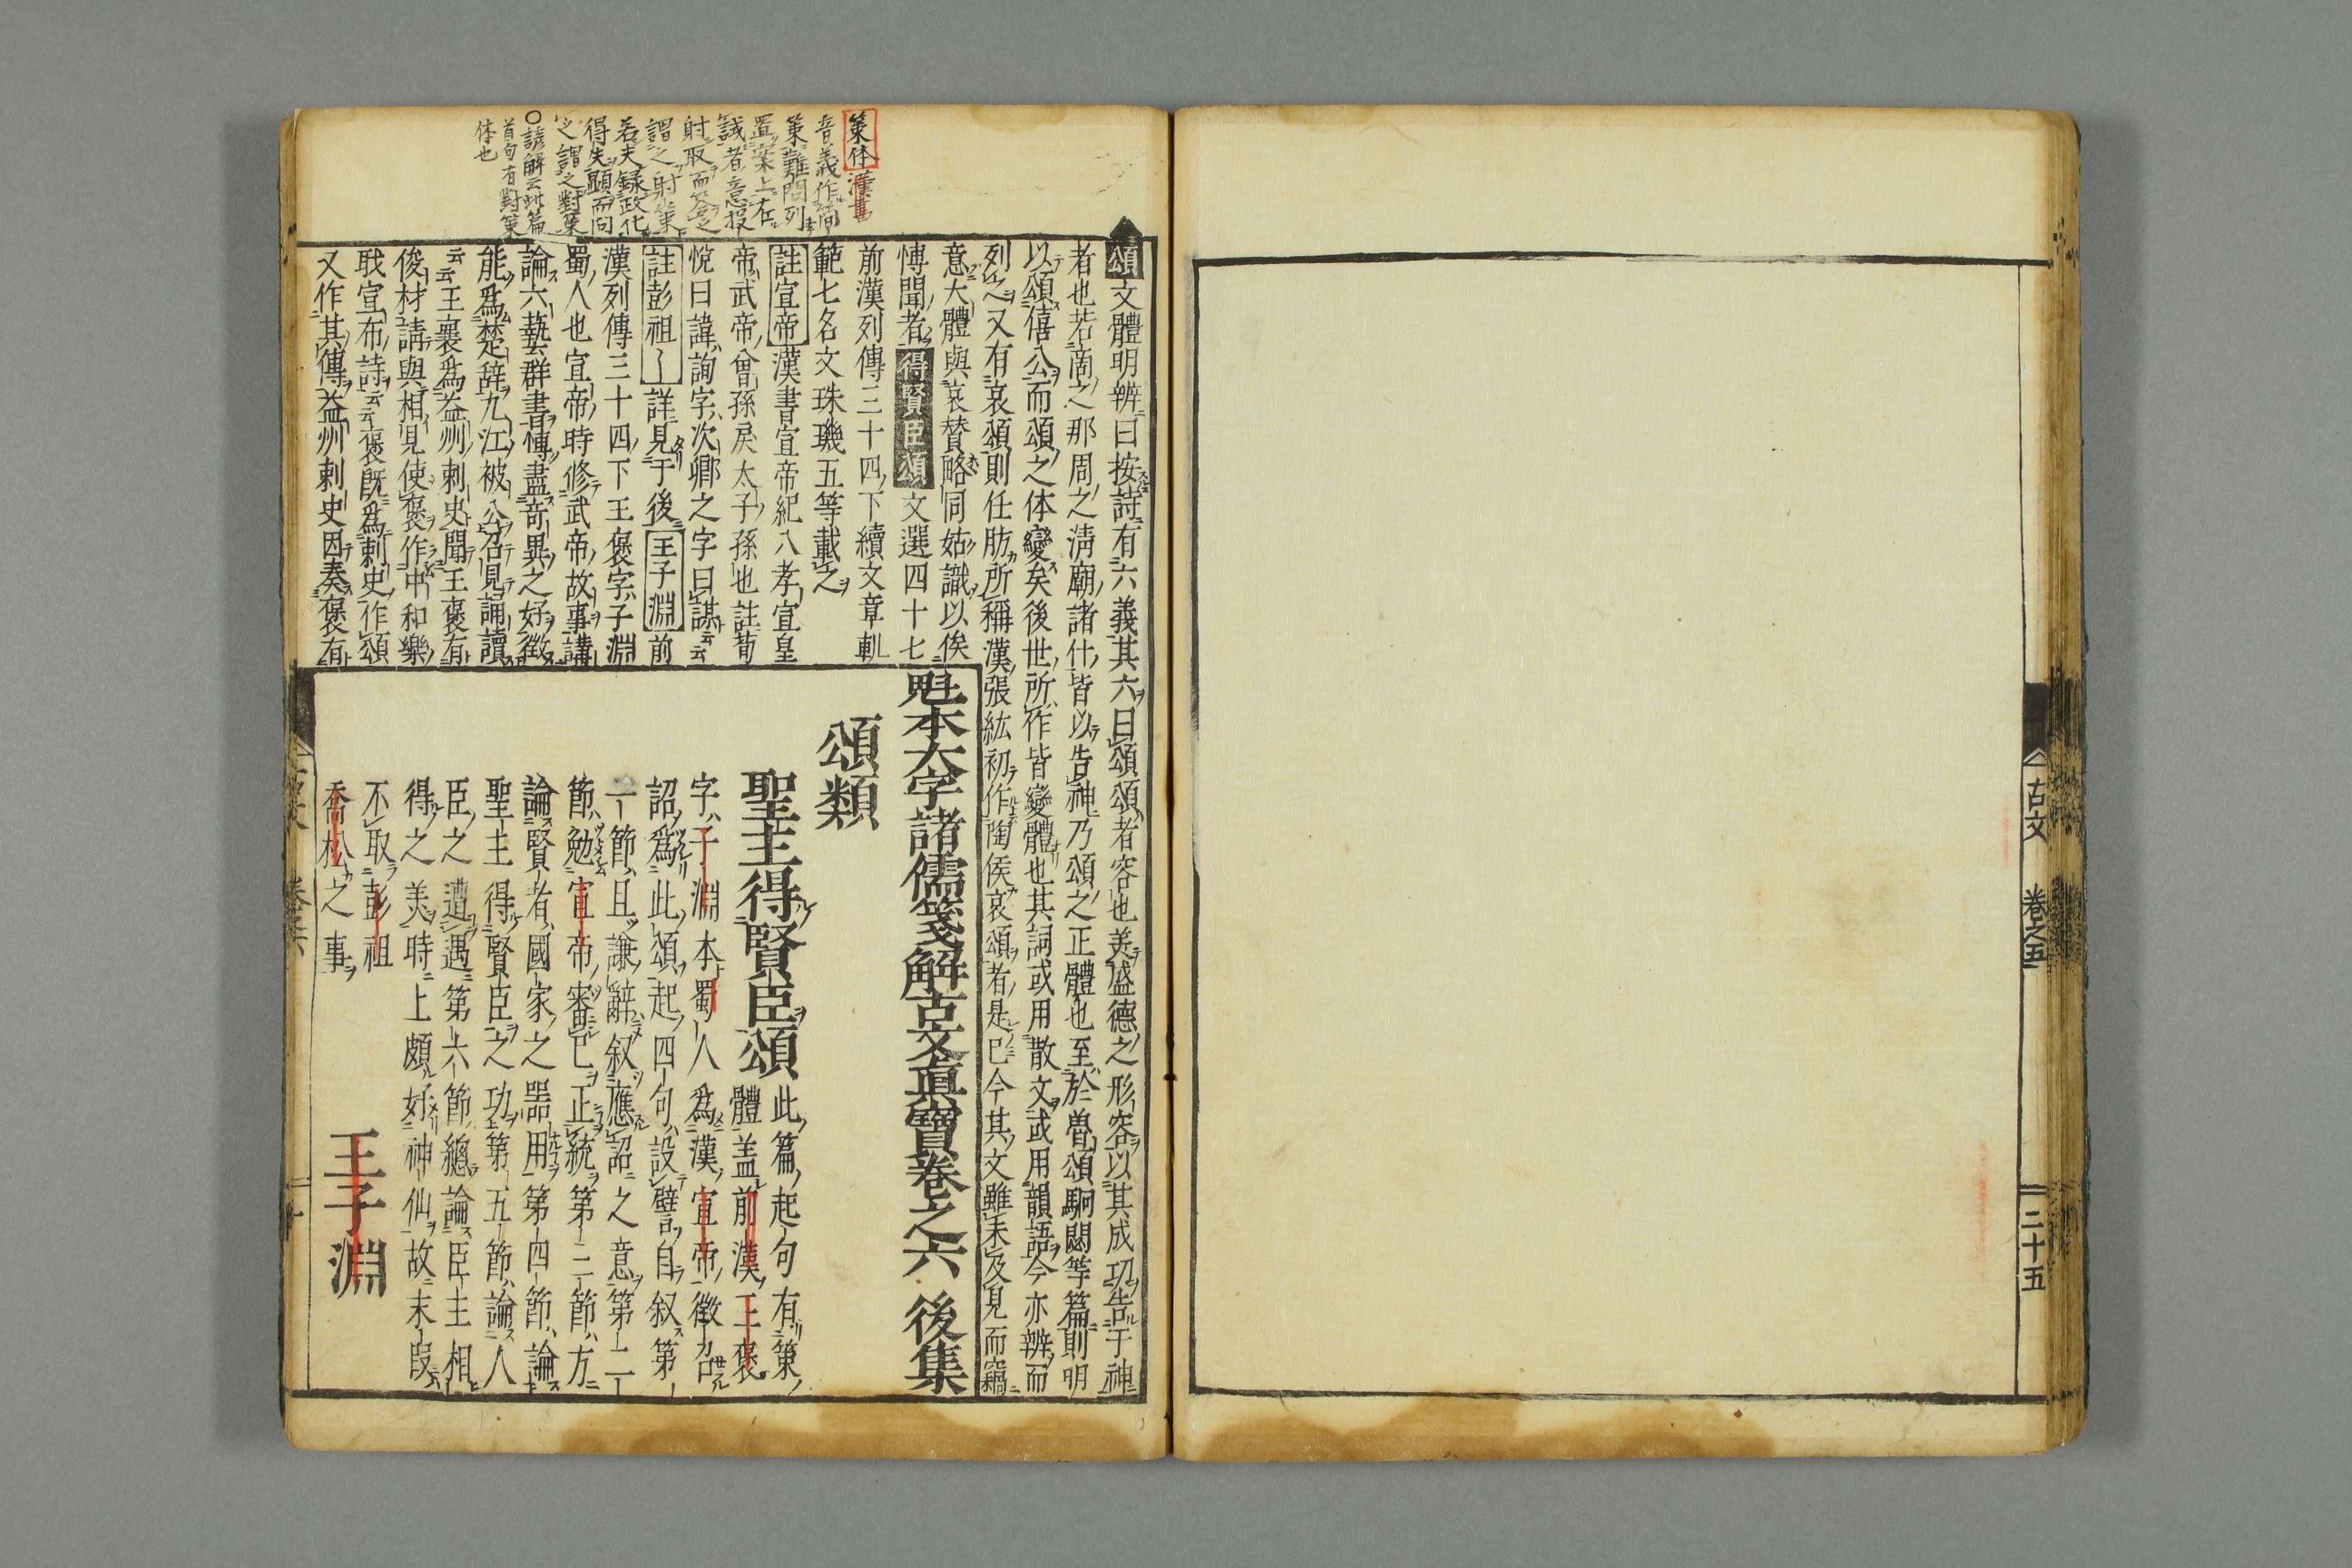 古文 卷之五 二十五
策体漢書
音義作簡
策難問列
置案上在
試者意投
射取而答之
謂之射策
若夫録政化
得失顯而問
之謂之對策
○諺解云此篇
首句有對策
体也
頌文體明辨曰按詩有六義其六曰頌頌者容也美盛德之形容以其成功告于神
者也若商之那周之清廟諸什皆以告神乃頌之正體也至於魯頌駉閟等篇則明
以頌僖公而頌之体變矣後世所作皆變體也其詞或用散文或用韻語今亦辨而
列之又有哀頌則任肪所稱漢張紘初作陶侯哀頌者是已今其文雖未及見而竊
意大體與哀賛略同姑識以俟
愽聞者得賢臣頌文選四十七
前漢列傳三十四下續文章軌
範七名文珠璣五等載之
註宣帝漢書宣帝紀八孝宣皇
帝武帝曾孫戾太子孫也註荀
悅曰諱詢字次卿之字曰謀云云
註彭祖〜詳見于後王子淵前
漢列傳三十四下王褒字子淵
蜀人也宣帝時修武帝故事講
論六藝群書愽盡竒異之好徵
能爲楚辞九江被公召見誦讀
云云王襄爲益州刺史聞王褒有
俊材請與相見使褒作中和樂
職宣布詩云云褒既爲刺史作頌
又作其傳益州刺史因奏褒有
魁本大字諸儒箋解古文眞寶卷之六 後集
頌類
聖主得賢臣頌 此篇起句有策
體盖前漢王褒
字子淵本蜀人爲漢宣帝徵召
詔爲此頌起四句設譬自叙第
一節且謙辭叙應詔之意第二
節勉宣帝審已正統第三節方
論賢者國家之器用第四節論
聖主得賢臣之功第五節論人
臣之遭遇第六節總論臣主相
得之美時上頗好神仙故末段
不取彭祖
喬松之事
王子淵